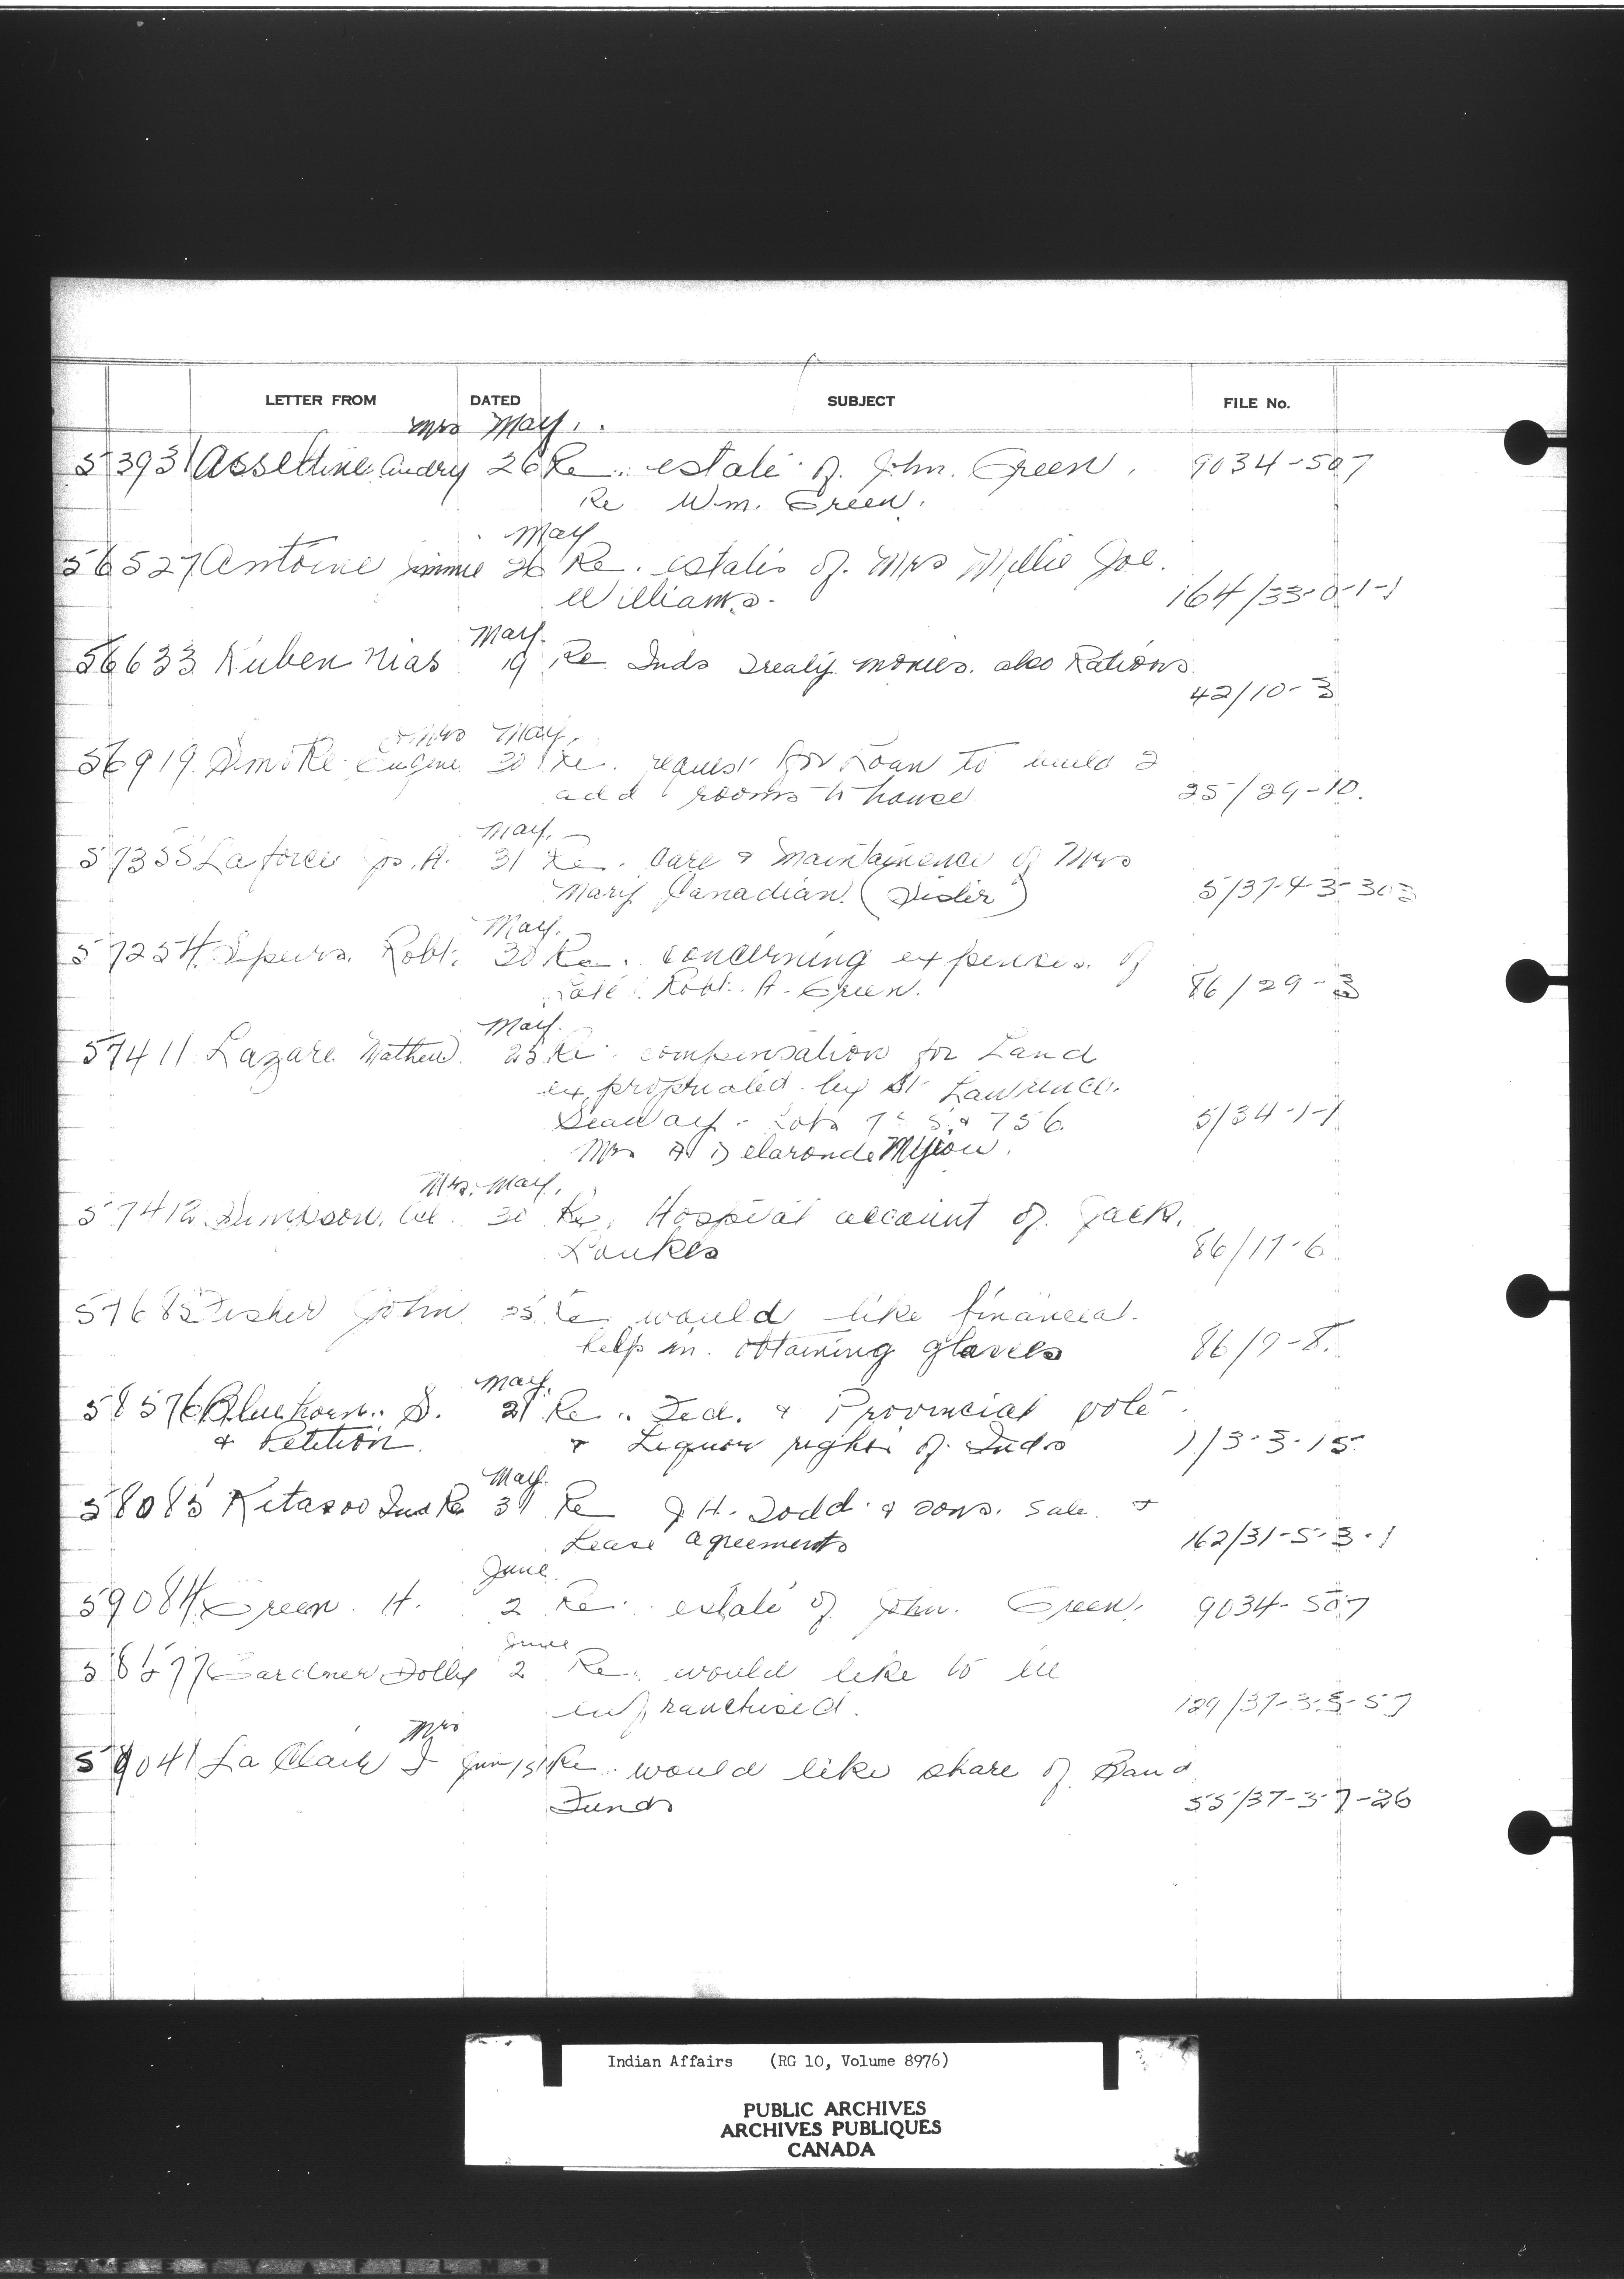 LETTER FROM DATED SUBJECT FILE No.
Mrs May
53931 Asseltine Audry 26 Re. estate of John Green. 9034-507
Re Wm. Green.
May
56527 Antoine Jimmie 26 Re. estates of Mrs Millie Joe.
Williams. 164/33-0-1-1
May
56633 Kuben Nias 19 Re Inds Treaty monies. also Rations
42/10-3
& Mrs May
56919 Smoke Eugene 30 Re. request for Loan to build 2
add rooms to house 25/29-10.
May
57355 Laforce Jos. A. 31 Re. Care & maintainence of Mrs
Mary Canadian (Sister) 5/37-4-3-303
May
57254 Spears. Robt. 30 Re. concerning expenses of
Late Robt. A. Green. 86/29-3
May
57411 Lazare Mathew 25 Re. compensation for Land
expropriated by St Lawrence.
Seaway - Lots & 756. 5/34-1-1
Mrs A Delaronde
Mrs. May,
57412 Simpson, 30 Re, Hospital account of Jack.
Loukes 86/17-6
57685 Fisher John 25 Re would like financial
help in obtaining glasses 86/9-8.
May
58576 Bluehorn. S. 21 Re.. Fed. & Provincial vote
& Petition. & Liquor rights of Inds 1/3-3-15
May
58085 Kitasoo Ind Re 31 Re J H. Todd & sons. Sale &
Lease agreements 162/31-5-3-1
June
59084 Green H. 2 Re. estate of John. Green. 9034-507
June
58577 Gardner Dolly 2 Re. would like to be
enfranchised. 129/37-3-3-57
Mrs
59041 La Clair I Jun 1st Re. would like share of Band
Funds 55/37-3-7-26
Indian Affairs (RG 10, Volume 8976)
PUBLIC ARCHIVES
ARCHIVES PUBLIQUES
CANADA
SAFETY FILM